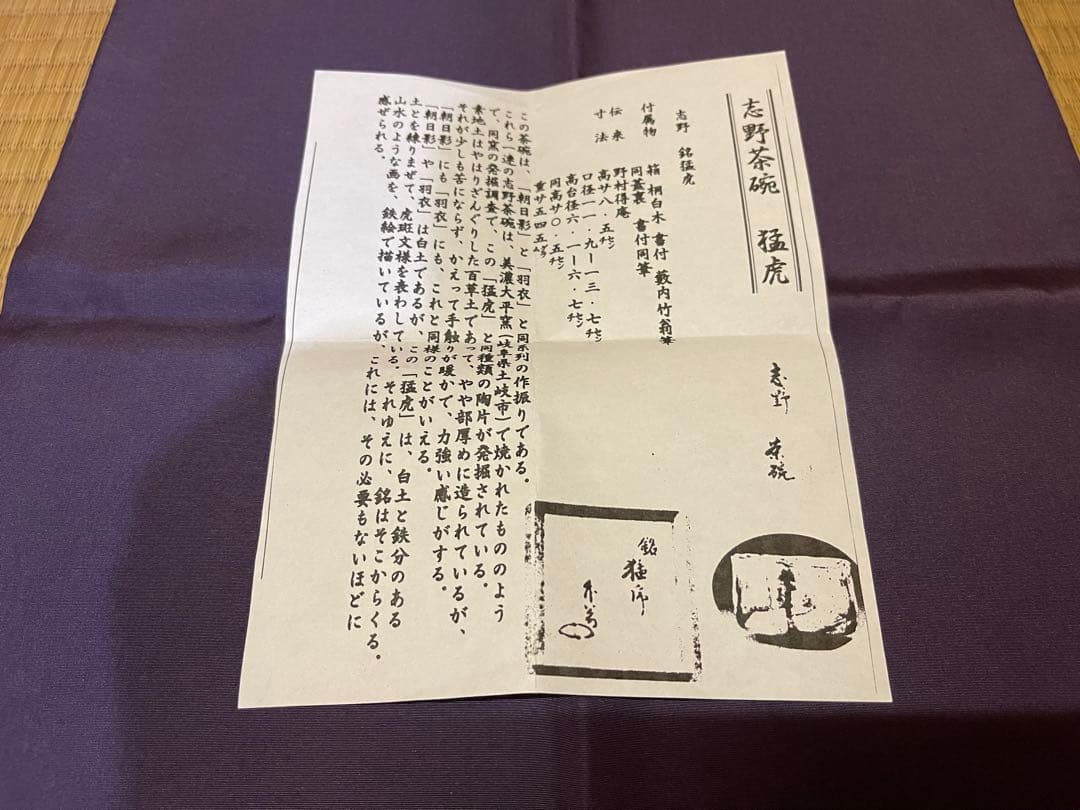 志野茶碗 猛虎
志野 銘猛虎
付属物 箱 桐白木 書付 藪内竹翁筆
同蓋裏 書付同筆
伝来 野村得庵
寸法 高サ八・五㌢
口径一一・九―一三・七㌢
高台径六・一―六・七㌢
同高サ〇・五㌢
重サ五四五㌘
この茶碗は、「朝日影」と「羽衣」と同系列の作振りである。
これら一連の志野茶碗は、美濃大平窯(岐阜県土岐市)で焼かれたもののよう
で、同窯の発掘調査で、この「猛虎」と同種類の陶片が発掘されている。
素地土はやはりざんぐりした百草土であって、やや部厚めに造られているが、
それが少しも苦にならず、かえって手触りが暖かで、力強い感じがする。
「朝日影」にも「羽衣」にも、これと同様のことがいえる。
「朝日影」や「羽衣」は白土であるが、この「猛虎」は、白土と鉄分のある
土とを練りまぜて、虎斑文様を表わしている。それゆえに、銘はそこからくる。
山水のような画を、鉄絵で描いているが、これには、その必要もないほどに
感ぜられる。
志野 茶碗
銘
猛虎